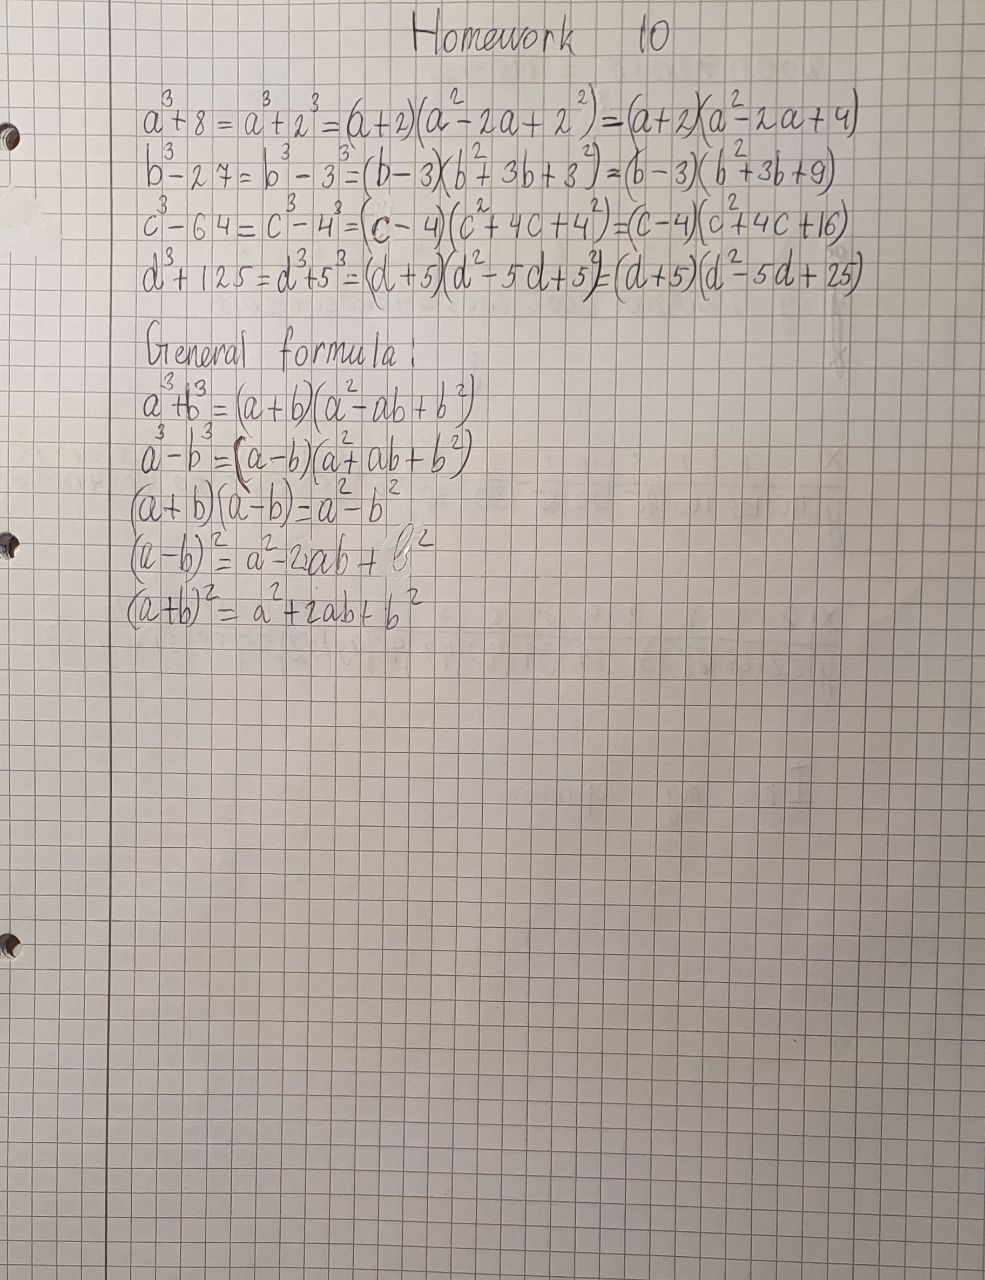 Homework 10
a³+8=a³+2³=(a+2)(a²-2a+2²)=(a+2)(a²-2a+4)
b³-27=b³-3³=(b-3)(b²+3b+3²)=(b-3)(b²+3b+9)
c³-64=c³-4³=(c-4)(c²+4c+4²)=(c-4)(c²+4c+16)
d³+125=d³+5³=(d+5)(d²-5d+5²)=(d+5)(d²-5d+25)
General formula:
a³+b³=(a+b)(a²-ab+b²)
a³-b³=(a-b)(a²+ab+b²)
(a+b)(a-b)=a²-b²
(a-b)²=a²-2ab+b²
(a+b)²=a²+2ab+b²